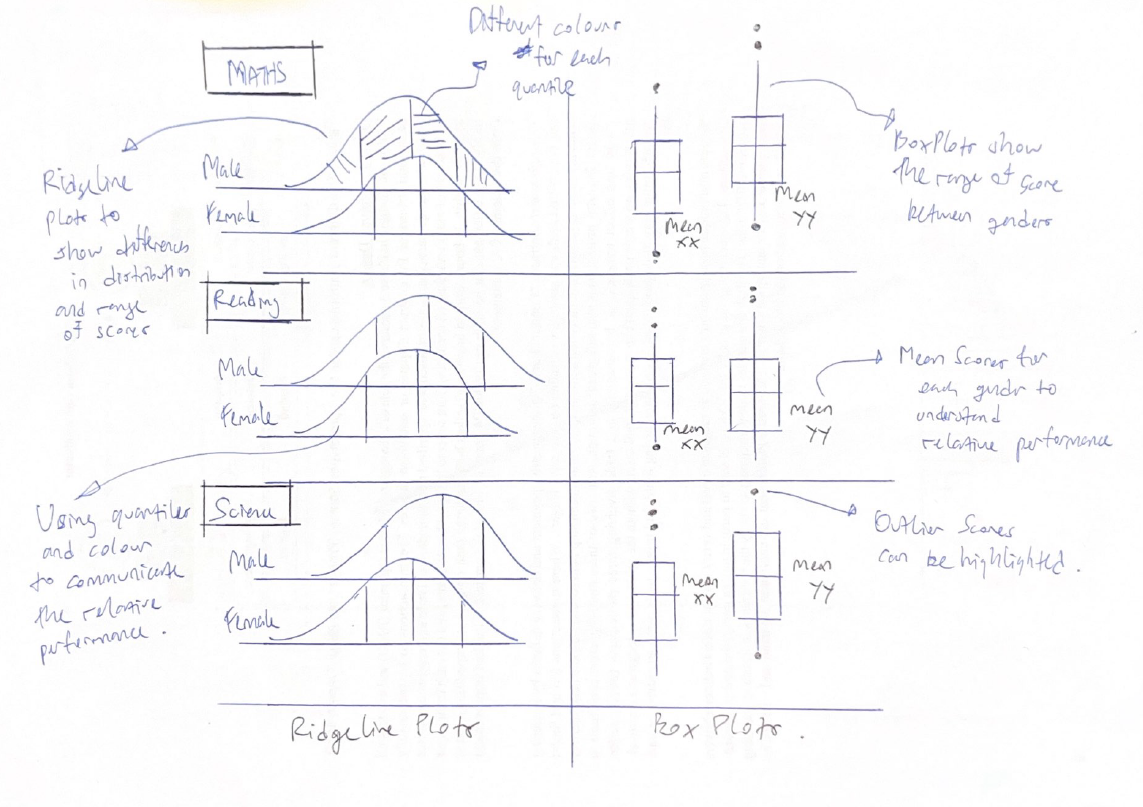 MATHS
Different colours
for each
quantile
Male
Female
Ridgeline
plots to
show difference
in distribution
and range
of scores
Mean
XX
Mean
YY
BoxPlots show
the range of score
between genders
Reading
Male
Female
mean
XX
mean
YY
Mean Scores for
each gender to
understand
relative performance
Using quantiles
and colour
to communicate
the relative
performance.
Science
Male
Female
Mean
XX
Mean
YY
Outlier Scores
can be highlighted.
Ridgeline Plots
Box Plots.